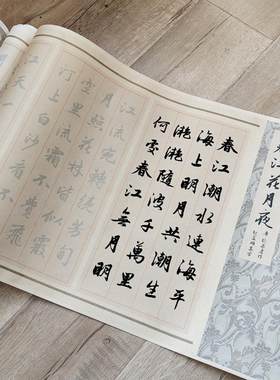 江花月夜
春江潮水連海平
海上明月共潮生
灩灩隨波千萬里
何處春江無月明
江流宛轉繞芳甸
月照花林皆似霰
空里流霜不覺飛
汀上白沙看不見
江天一